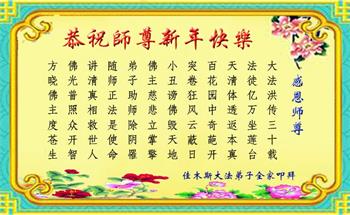 恭祝師尊新年快樂
感恩師尊
大法洪传三十载
法徒亿万坐莲台
天清体透返本真
百花园中奇葩开
突卷狂风云蔽日
小丑谤佛毁天地
佛主慈悲立掌擎
弟子助师除阴霾
随师正法是使命
讲清真相救世人
佛光普照众开智
方晓佛主度苍生
佳木斯大法弟子全家叩拜